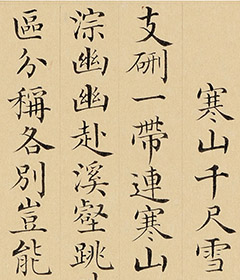 寒山千尺雪
支硎一帶連寒山
淙幽幽赴溪壑跳
區分稱各別豈能